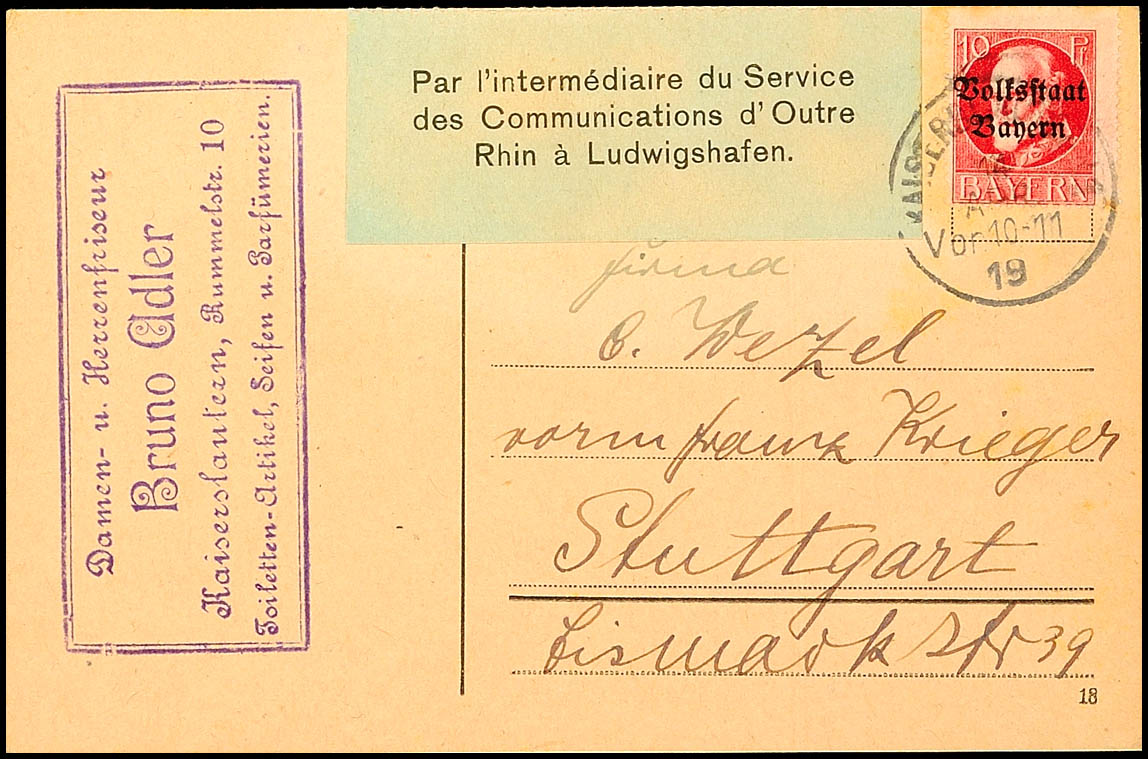 Damen- u. Herrenfriseur
Bruno Adler
Kaiserslautern, Rummelstr. 10
Toiletten-Artikel, Seifen u. Parfümerien.
Par l'intermédiaire du Service
des Communications d'Outre
Rhin à Ludwigshafen.
10 Pf
Volksstaat
Bayern
BAYERN
KAISER
Vor 10-11
19
Firma
C. Wezel
vorm Franz Krieger
Stuttgart
Bismarckstr 39
13